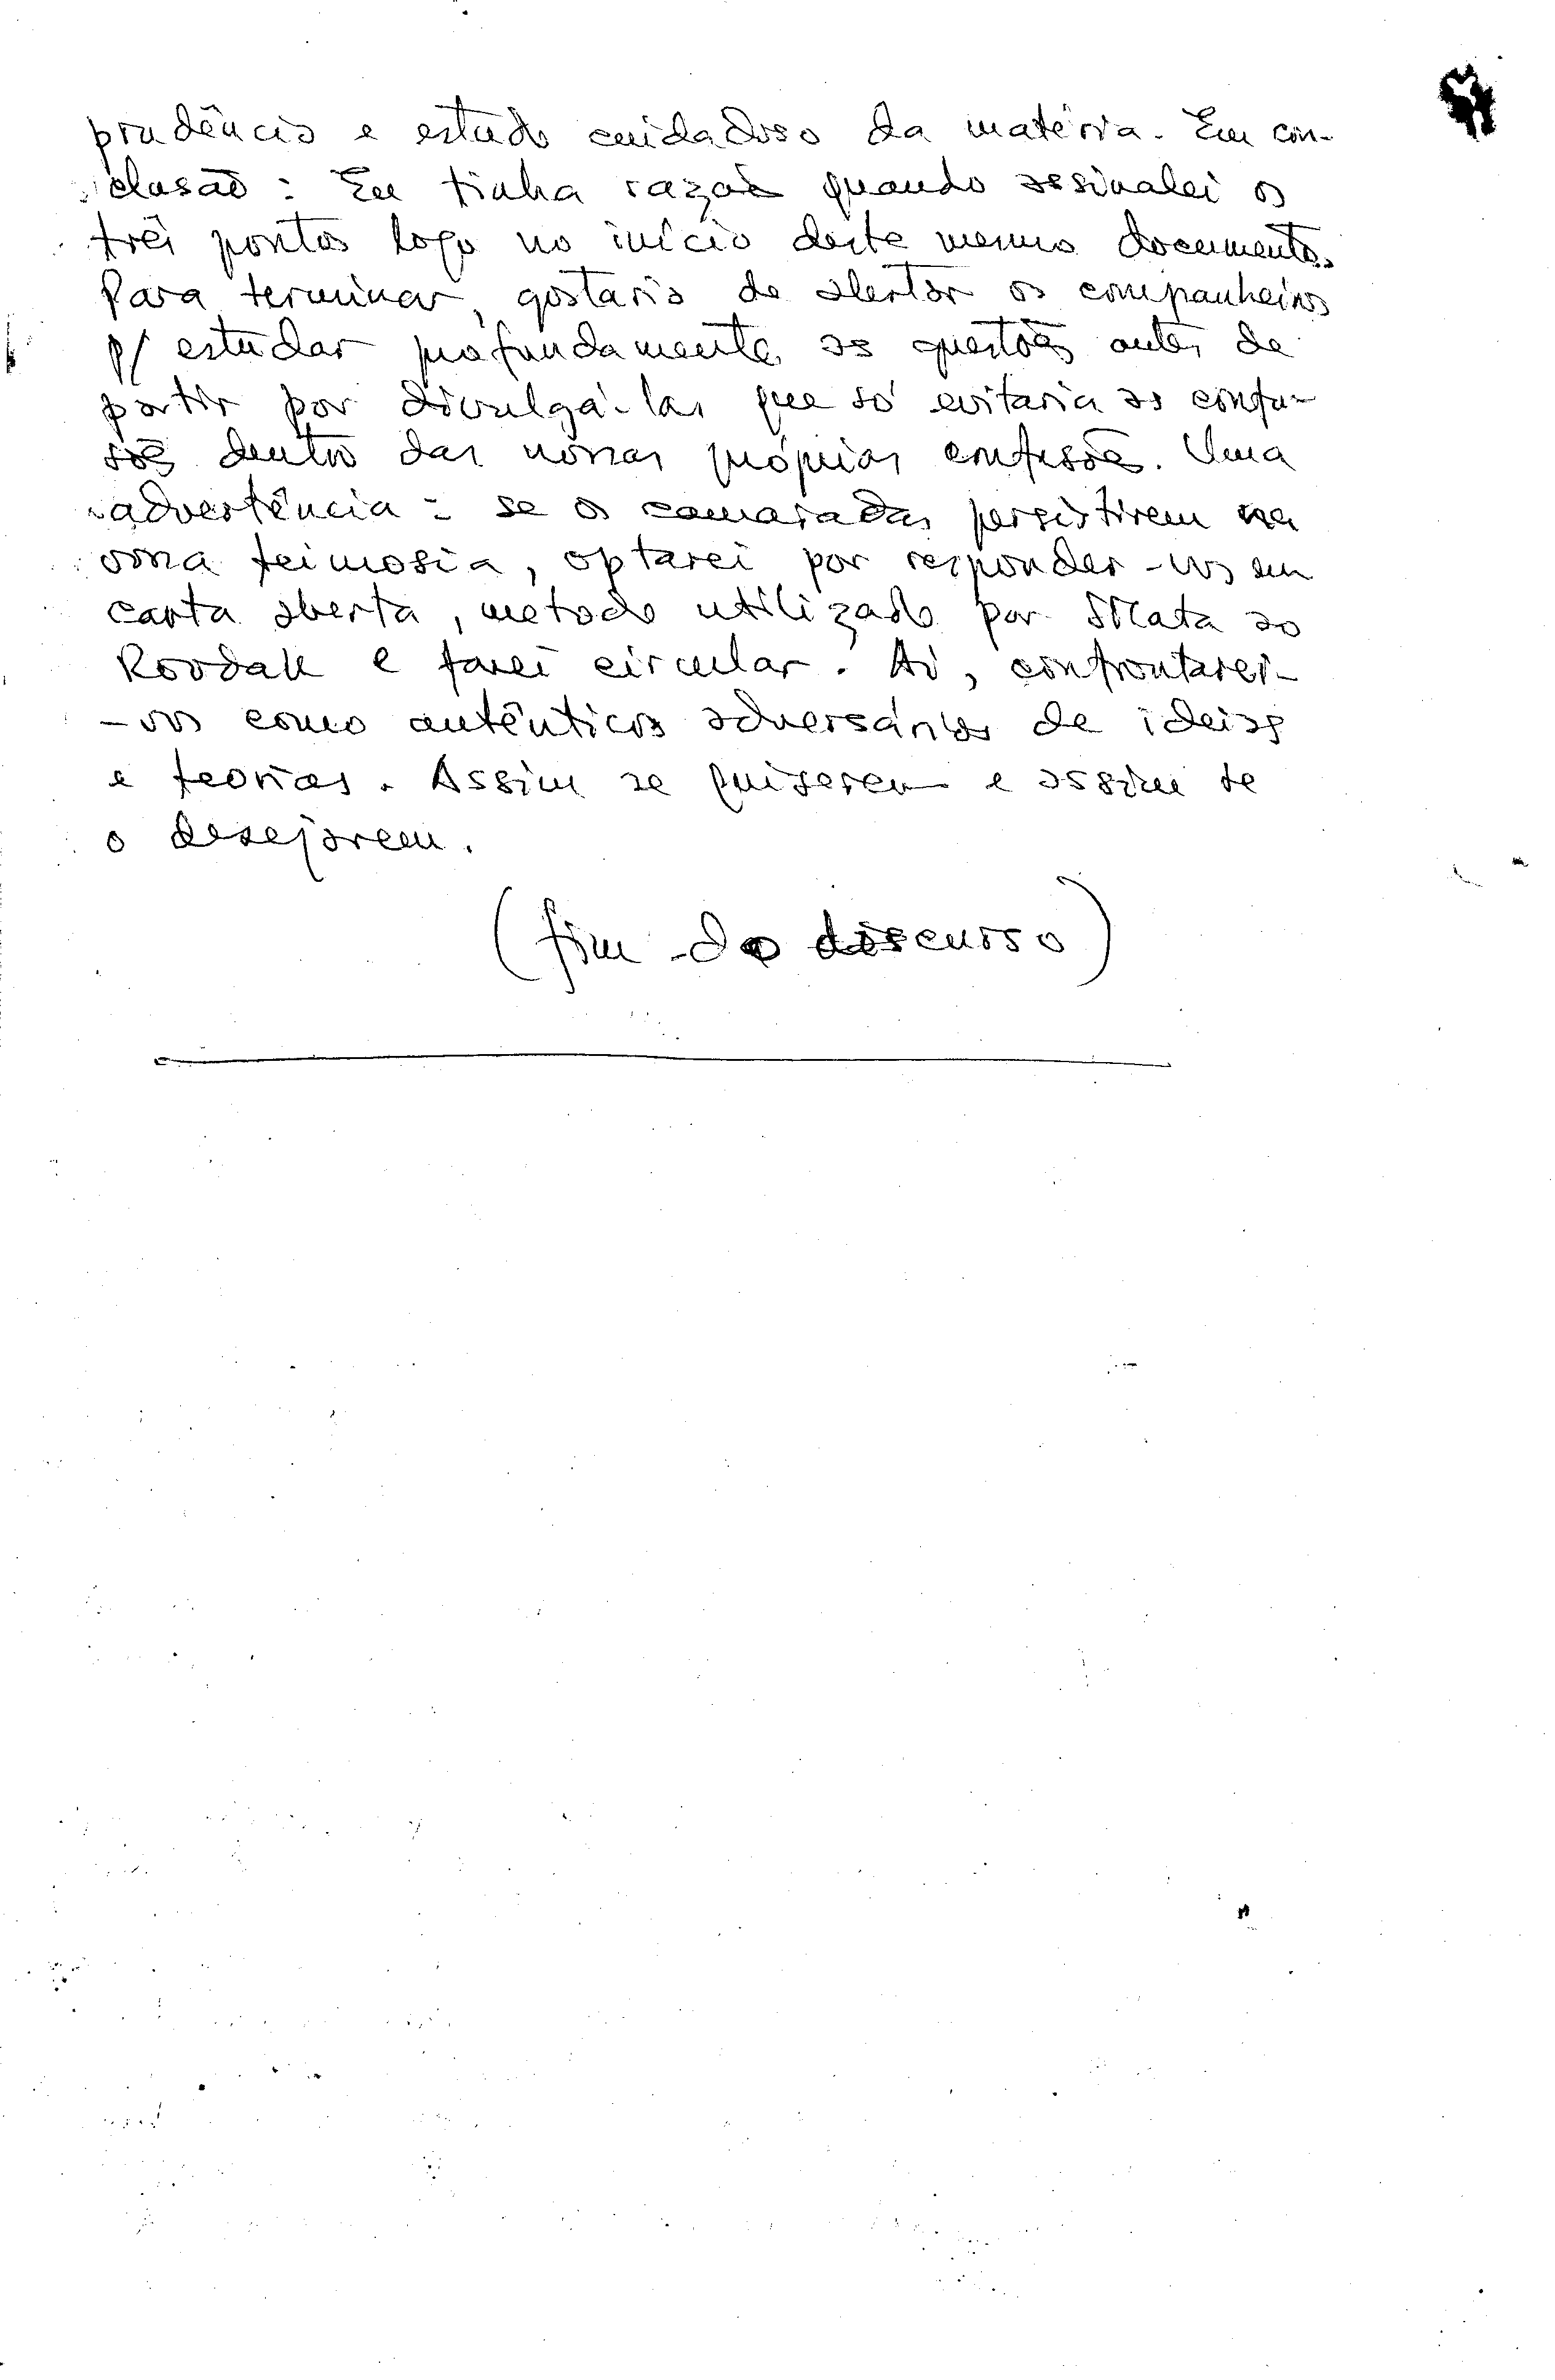 prudência e estudo cuidadoso da matéria. Em con-
clusão: Eu tinha razão quando assinalei os
três pontos logo no início deste mesmo documento.
Para terminar, gostaria de alertar os companheiros
p/ estudar profundamente as questões antes de
partir por divulgá-las que só evitaria as confu-
sões dentro das nossas próprias confusões. Uma
advertência: se os camaradas persistirem na
vossa teimosia, optarei por responder-vos em
carta aberta, metodo utilizado por Mata ao
e farei circular. Aí, confrontarei-
-vos como autênticos adversários de ideias
e teorias. Assim se quiserem e assim se
o desejarem.
(fim do discurso)